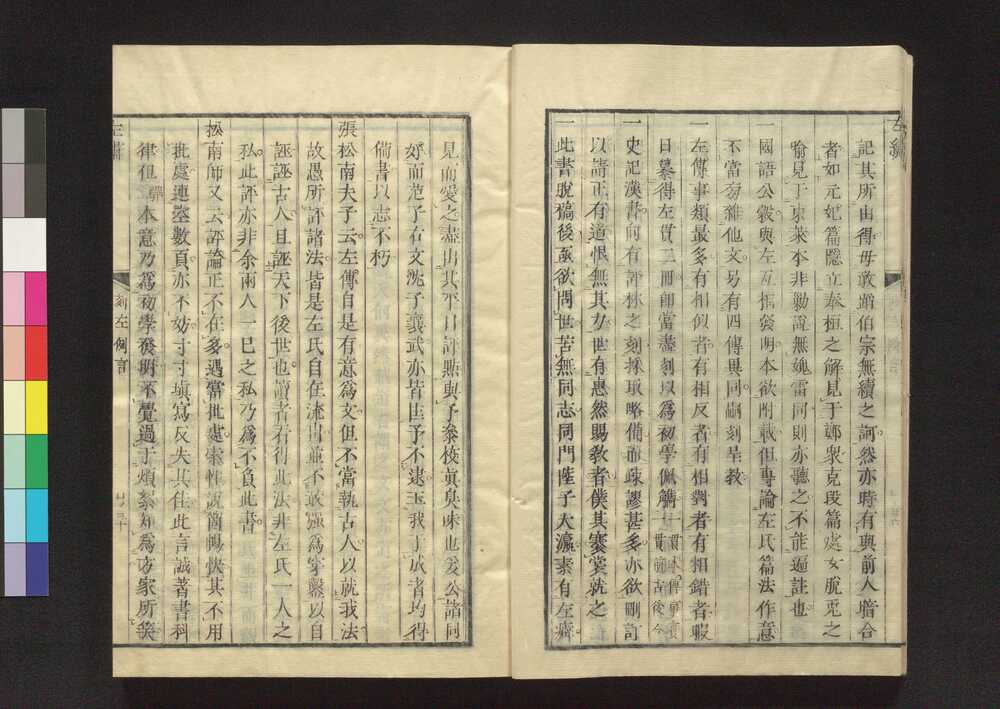 記其所由得毋敢蹈伯宗無續之訶然亦時有與前人暗合
者如元妃篇隱立奉桓之解見于鄭衆克段篇處女脫兎之
喻見于東萊本非勦說無媿雷同則亦聽之不能遍註也
一國語公穀與左互相發明本欲附載但專論左氏篇法作意
不當芴雜他文易有四傳異同嗣刻呈教
一左傳事類最多有相似者有相反者有相對者有相錯者暇
日纂得左貫二冊卽當盡刻以爲初學佩觿
一史記漢書向有評林之刻採取略備而疎謬甚多亦欲刪訂
以請正有道恨無其力世有惠然賜敎者僕其褰裳就之
一此書脫稿後亟欲問世苦無同志同門陸子大瀛素有左癖
見而愛之盡出其平日評點與予叅校眞臭味也爰公諸同
好而范子右文沈子讓武亦皆匡予不逮玉我于成者均得
備書以志不朽
張松南夫子云左傳自是有意爲文但不當執古人以就我法
故愚所評諸法皆是左氏自在流出並不敢强爲穿鑿以自
誣誣古人且誣天下後世也讀者看得此法非左氏一人之
私此評亦非余兩人一已之私乃爲不負此書
松南師又云評論正不在多遇當批處索性說箇暢快其不用
批處連塗數頁亦不妨寸寸塡寫反失其佳此言誠著書科
律但本意乃爲初學發明不覺過于煩絮知爲方家所笑
左繡
刻左例言